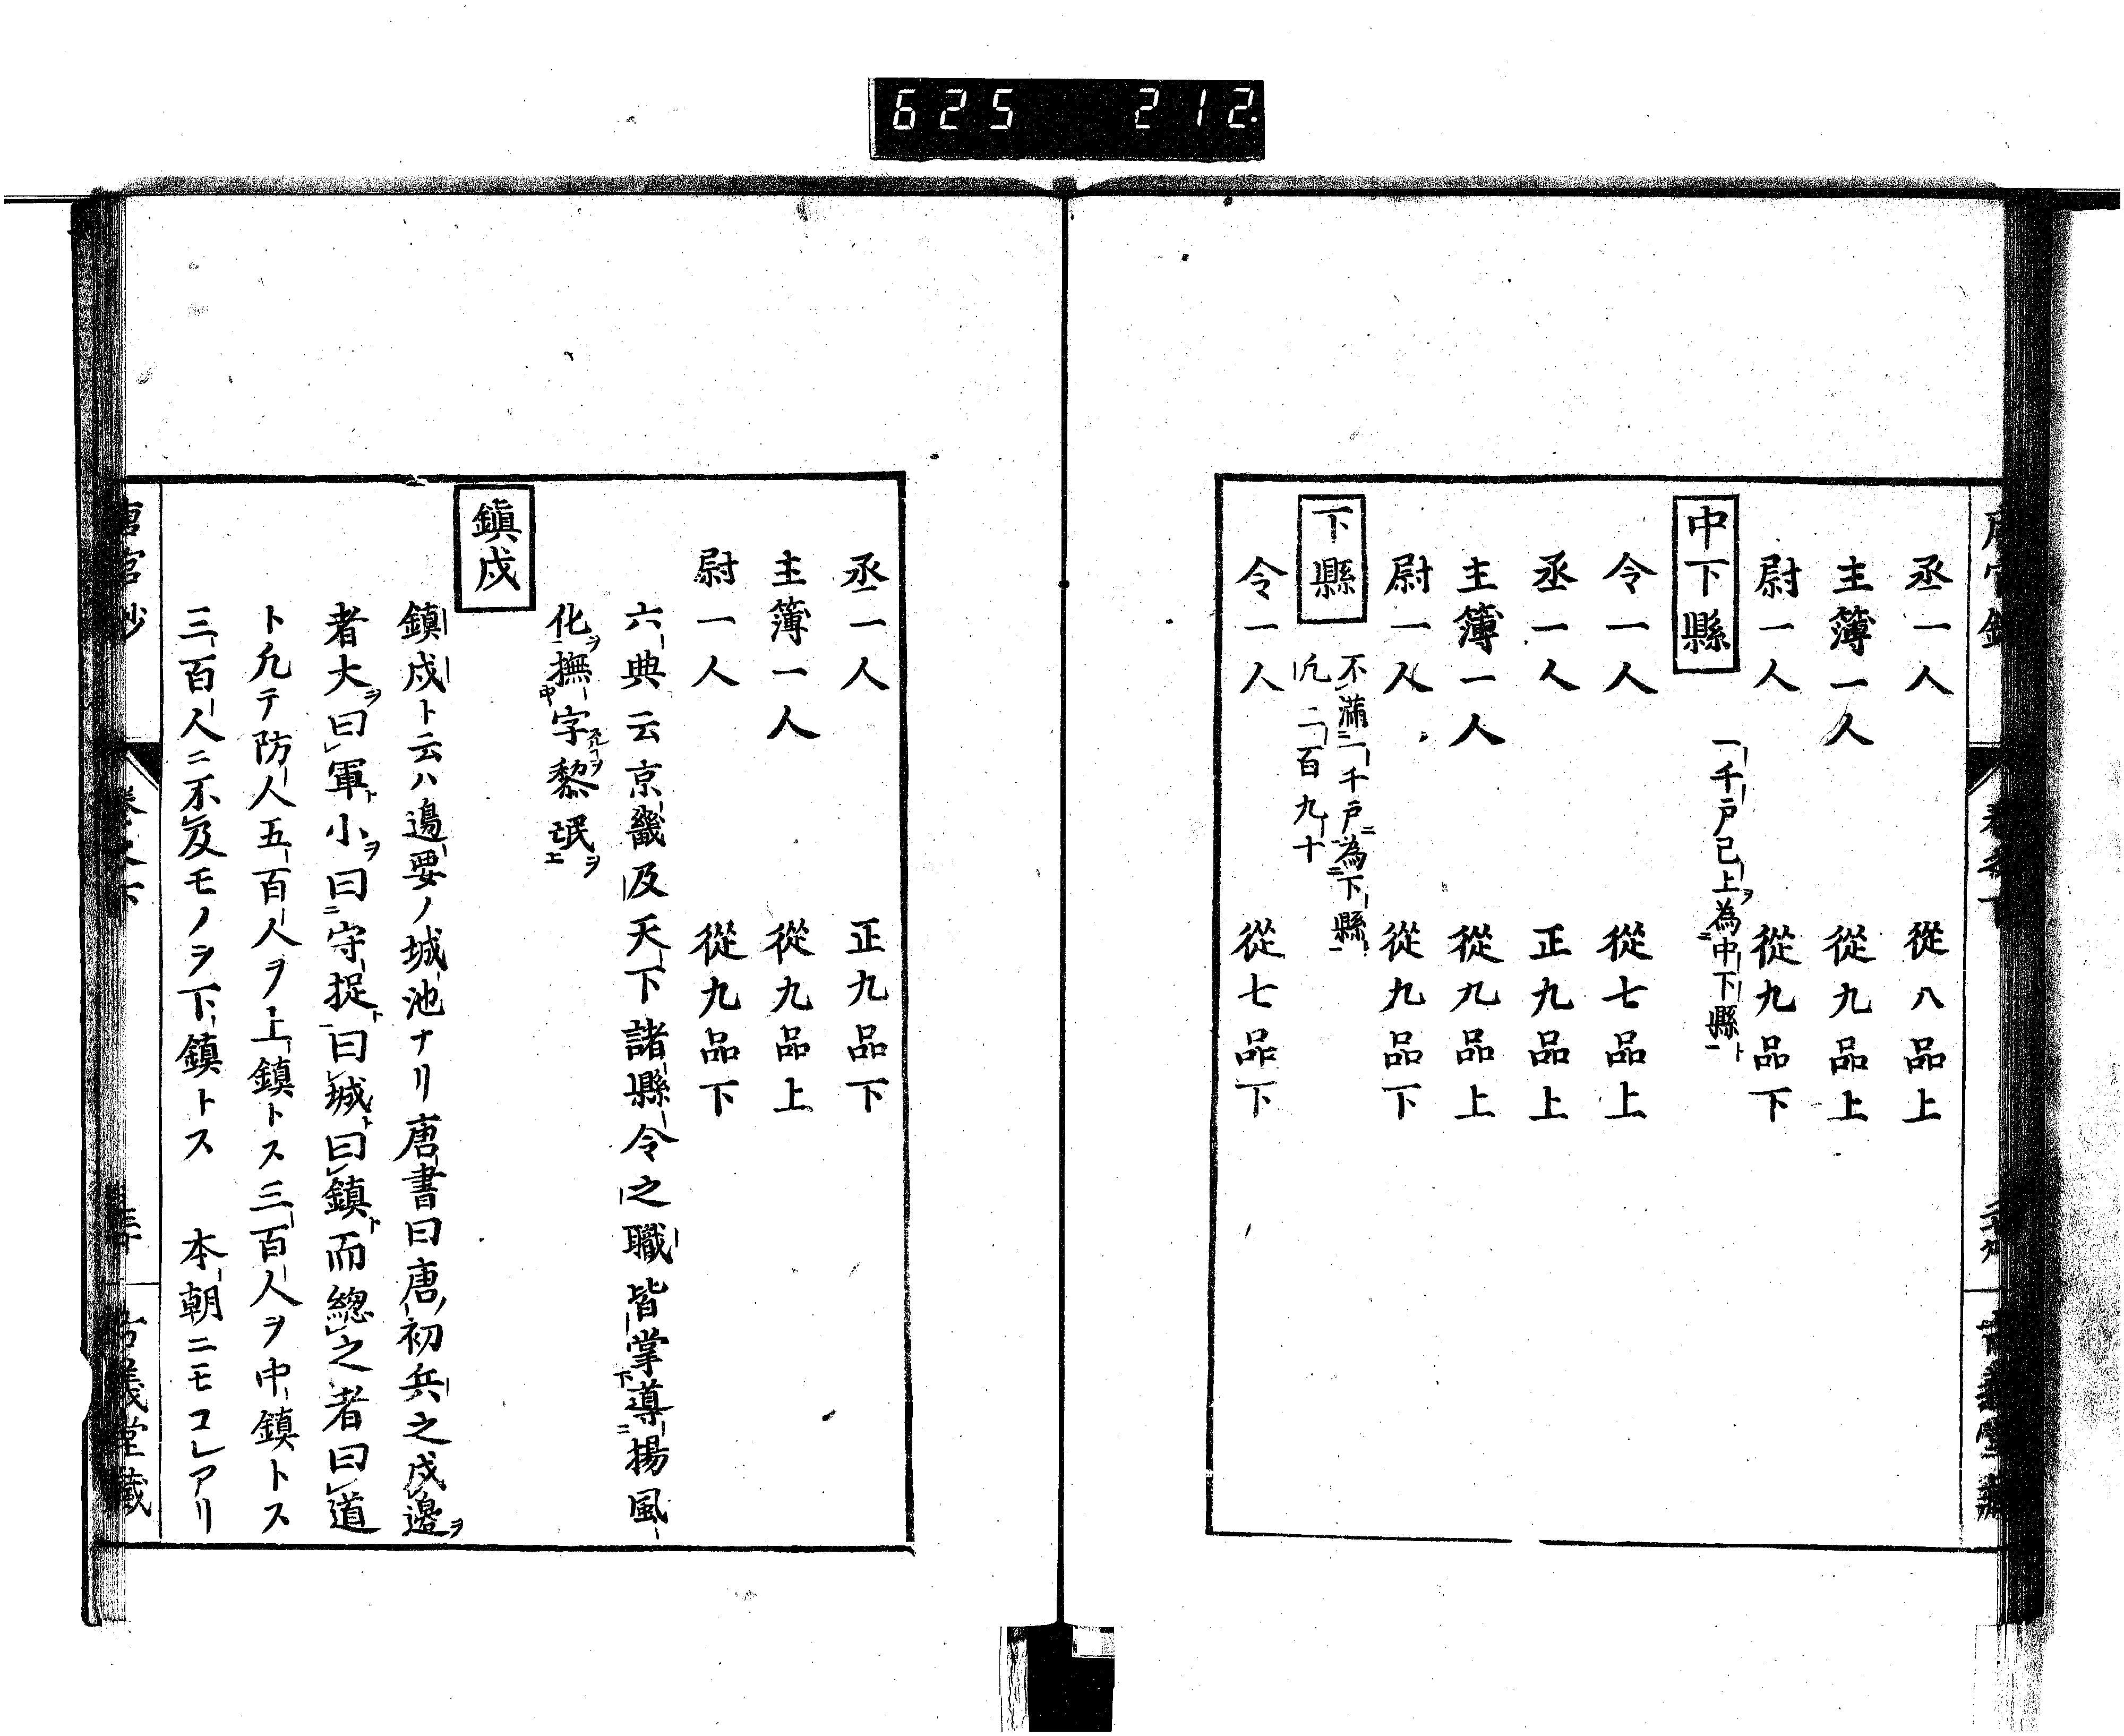 625 212
丞一人 從八品上
主簿一人 從九品上
尉一人 從九品下
中下縣 一千戸已上ヲ為中下縣ト
令一人 從七品上
丞一人 正九品上
主簿一人 從九品上
尉一人 從九品下
下縣 不滿一千戸為下縣
凢二百九十
令一人 從七品下
丞一人 正九品下
主簿一人 從九品上
尉一人 從九品下
六典云京畿及天下諸縣令之職皆掌導揚風
化ヲ撫字黎氓ヲ
鎮戍
鎮戍ト云ハ邊要ノ城池ナリ唐書曰唐初兵之戍邊ヲ
者大ヲ曰軍ト小ヲ曰守捉ト曰城ト曰鎮ト而總之者曰道
ト凢テ防人五百人ヲ上鎮トス三百人ヲ中鎮トス
三百人ニ不及モノヲ下鎮トス 本朝ニモコレアリ
唐官鈔 卷之下 古義堂藏